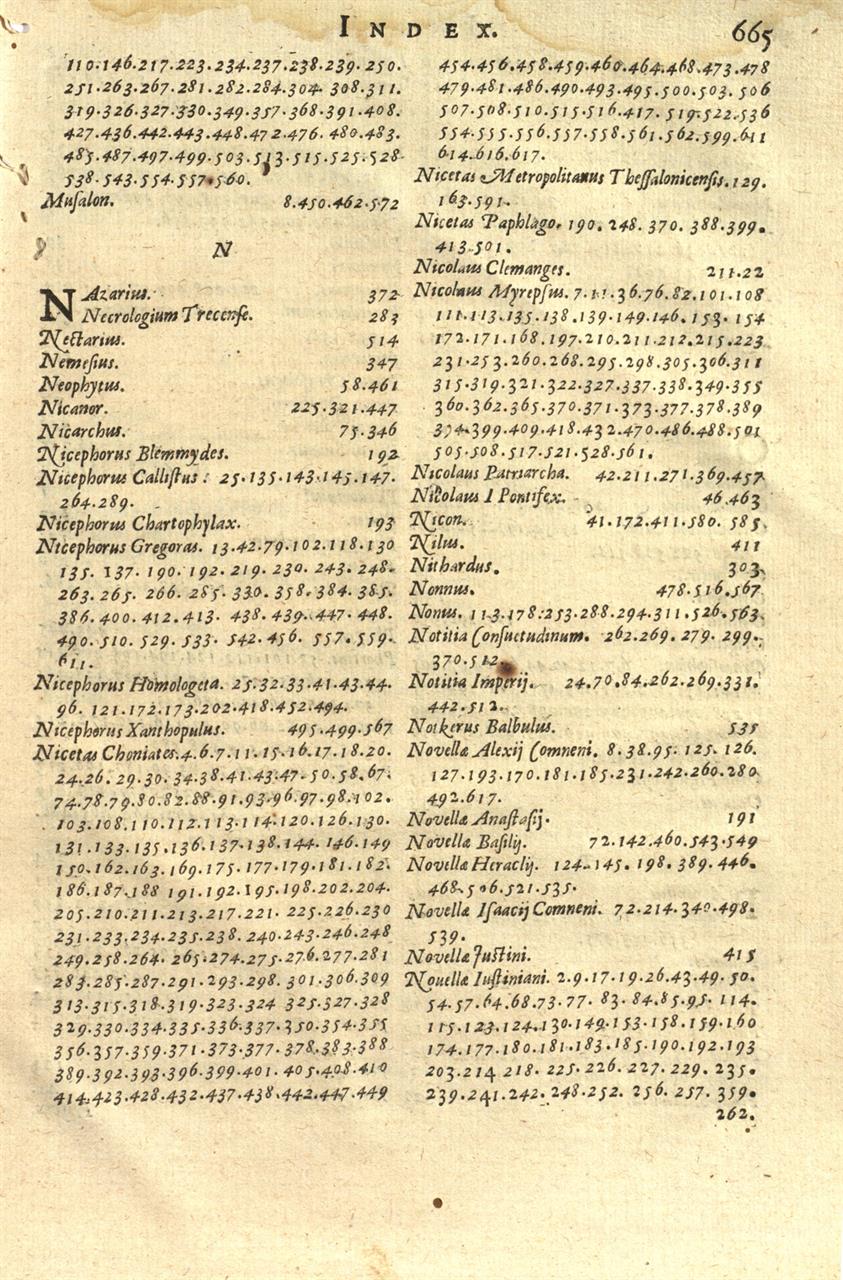 INDEX. 665
110.146.217.223.234.237.238.239.250.
251.263.267.281.282.284.304. 308.311.
319.326.327.330.349.357.368.391.408.
427.436.442.443.448.472.476. 480.483.
485.487.497.499.503.513.515.525.528
538.543.554.557.560.
Muſalon. 8.450.462.572
N
NAzarius. 372
Necrologium Trecenſe. 283
Nectarius. 514
Nemeſius. 347
Neophytus. 58.461
Nicanor. 225.321.447
Nicarchus. 75.346
Nicephorus Blemmydes. 192
Nicephorus Calliſtus: 25.135.143.145.147.
264.289.
Nicephorus Chartophylax. 193
Nicephorus Gregoras. 13.42.79.102.118.130
135. 137. 190. 192. 219. 230. 243. 248.
263. 265. 266. 285. 330. 358. 384. 385.
386.400.412.413. 438.439. 447. 448.
490. 510. 529. 533. 542.456. 557.559.
611.
Nicephorus Homologeta. 25.32.33.41.43.44.
96. 121.172.173.202.418.452.494.
Nicephorus Xanthopulus. 495.499.567
Nicetas Choniates.4.6.7.11.15.16.17.18.20.
24.26. 29.30. 34.38.41.43.47.50.58.67.
74.78.79.80.82.88.91.93.96.97.98.102.
103.108.110.112.113.114.120.126.130.
131.133.135.136.137.138.144.146.149
150.162.163.169.175.177.179.181.182.
186.187.188 191.192.195.198.202.204.
205.210.211.213.217.221. 225.226.230
231.233.234.235.238. 240.243.246.248
249.258.264. 265.274.275.276.277.281
283.285.287.291.293.298. 301.306.309
313.315.318.319.323.324 325.327.328
329.330.334.335.336.337.350.354.355
356.357.359.371.373.377.378.383.388
389.392.393.396.399.401. 405.408.410
414.423.428.432.437.438.442.447.449
454.456.458.459.460.464.468.473.478
479.481.486.490.493.495.500.503. 506
507.508.510.515.516.417. 519.522.536
554.555.556.557.558.561.562.599.611
614.616.617.
Nicetas Metropolitanus Theſſalonicenſis.129.
163.591.
Nicetas Paphlago. 190. 248. 370. 388.399.
413.501.
Nicolaus Clemanges. 211.22
Nicolaus Myrepſus. 7.11.36.76.82.101.108
111.113.135.138.139.149.146.153.154
172.171.168.197.210.211.212.215.223
231.253.260.268.295.298.305.306.311
315.319.321.322.327.337.338.349.355
360.362.365.370.371.373.377.378.389
394.399.409.418.432.470.486.488.501
505.508.517.521.528.561.
Nicolaus Patriarcha. 42.211.271.369.457
Nicolaus I Pontifex. 46.463
Nicon. 41.172.411.580. 585.
Nilus. 411
Nithardus. 303
Nonnus. 478.516.567
Nonus. 113.178:253.288.294.311.526.563.
Notitia Conſuetudinum. 262.269. 279. 299.
370.512.
Notitia Imperij. 24.70.84.262.269.331.
442.512.
Notkerus Balbulus. 535
Novellæ Alexij Comneni. 8.38.95. 125. 126.
127.193.170.181.185.231.242.260.280
492.617.
Novellæ Anaſtaſij. 191
Novellæ Baſilij. 72.142.460.543.549
Novellæ Heraclij. 124.145. 198. 389. 446.
468.506.521.535.
Novellæ Iſaacij Comneni. 72.214.340.498.
539.
Novellæ Juſtini. 415
Nouellæ Iuſtiniani. 2.9.17.19.26.43.49. 50.
54.57.64.68.73.77. 83.84.85.95. 114.
115.123.124.130.149.153.158.159.160
174.177.180.181.183.185.190.192.193
203.214 218. 225.226.227.229. 235.
239.241.242. 248.252. 256. 257. 359.
262.